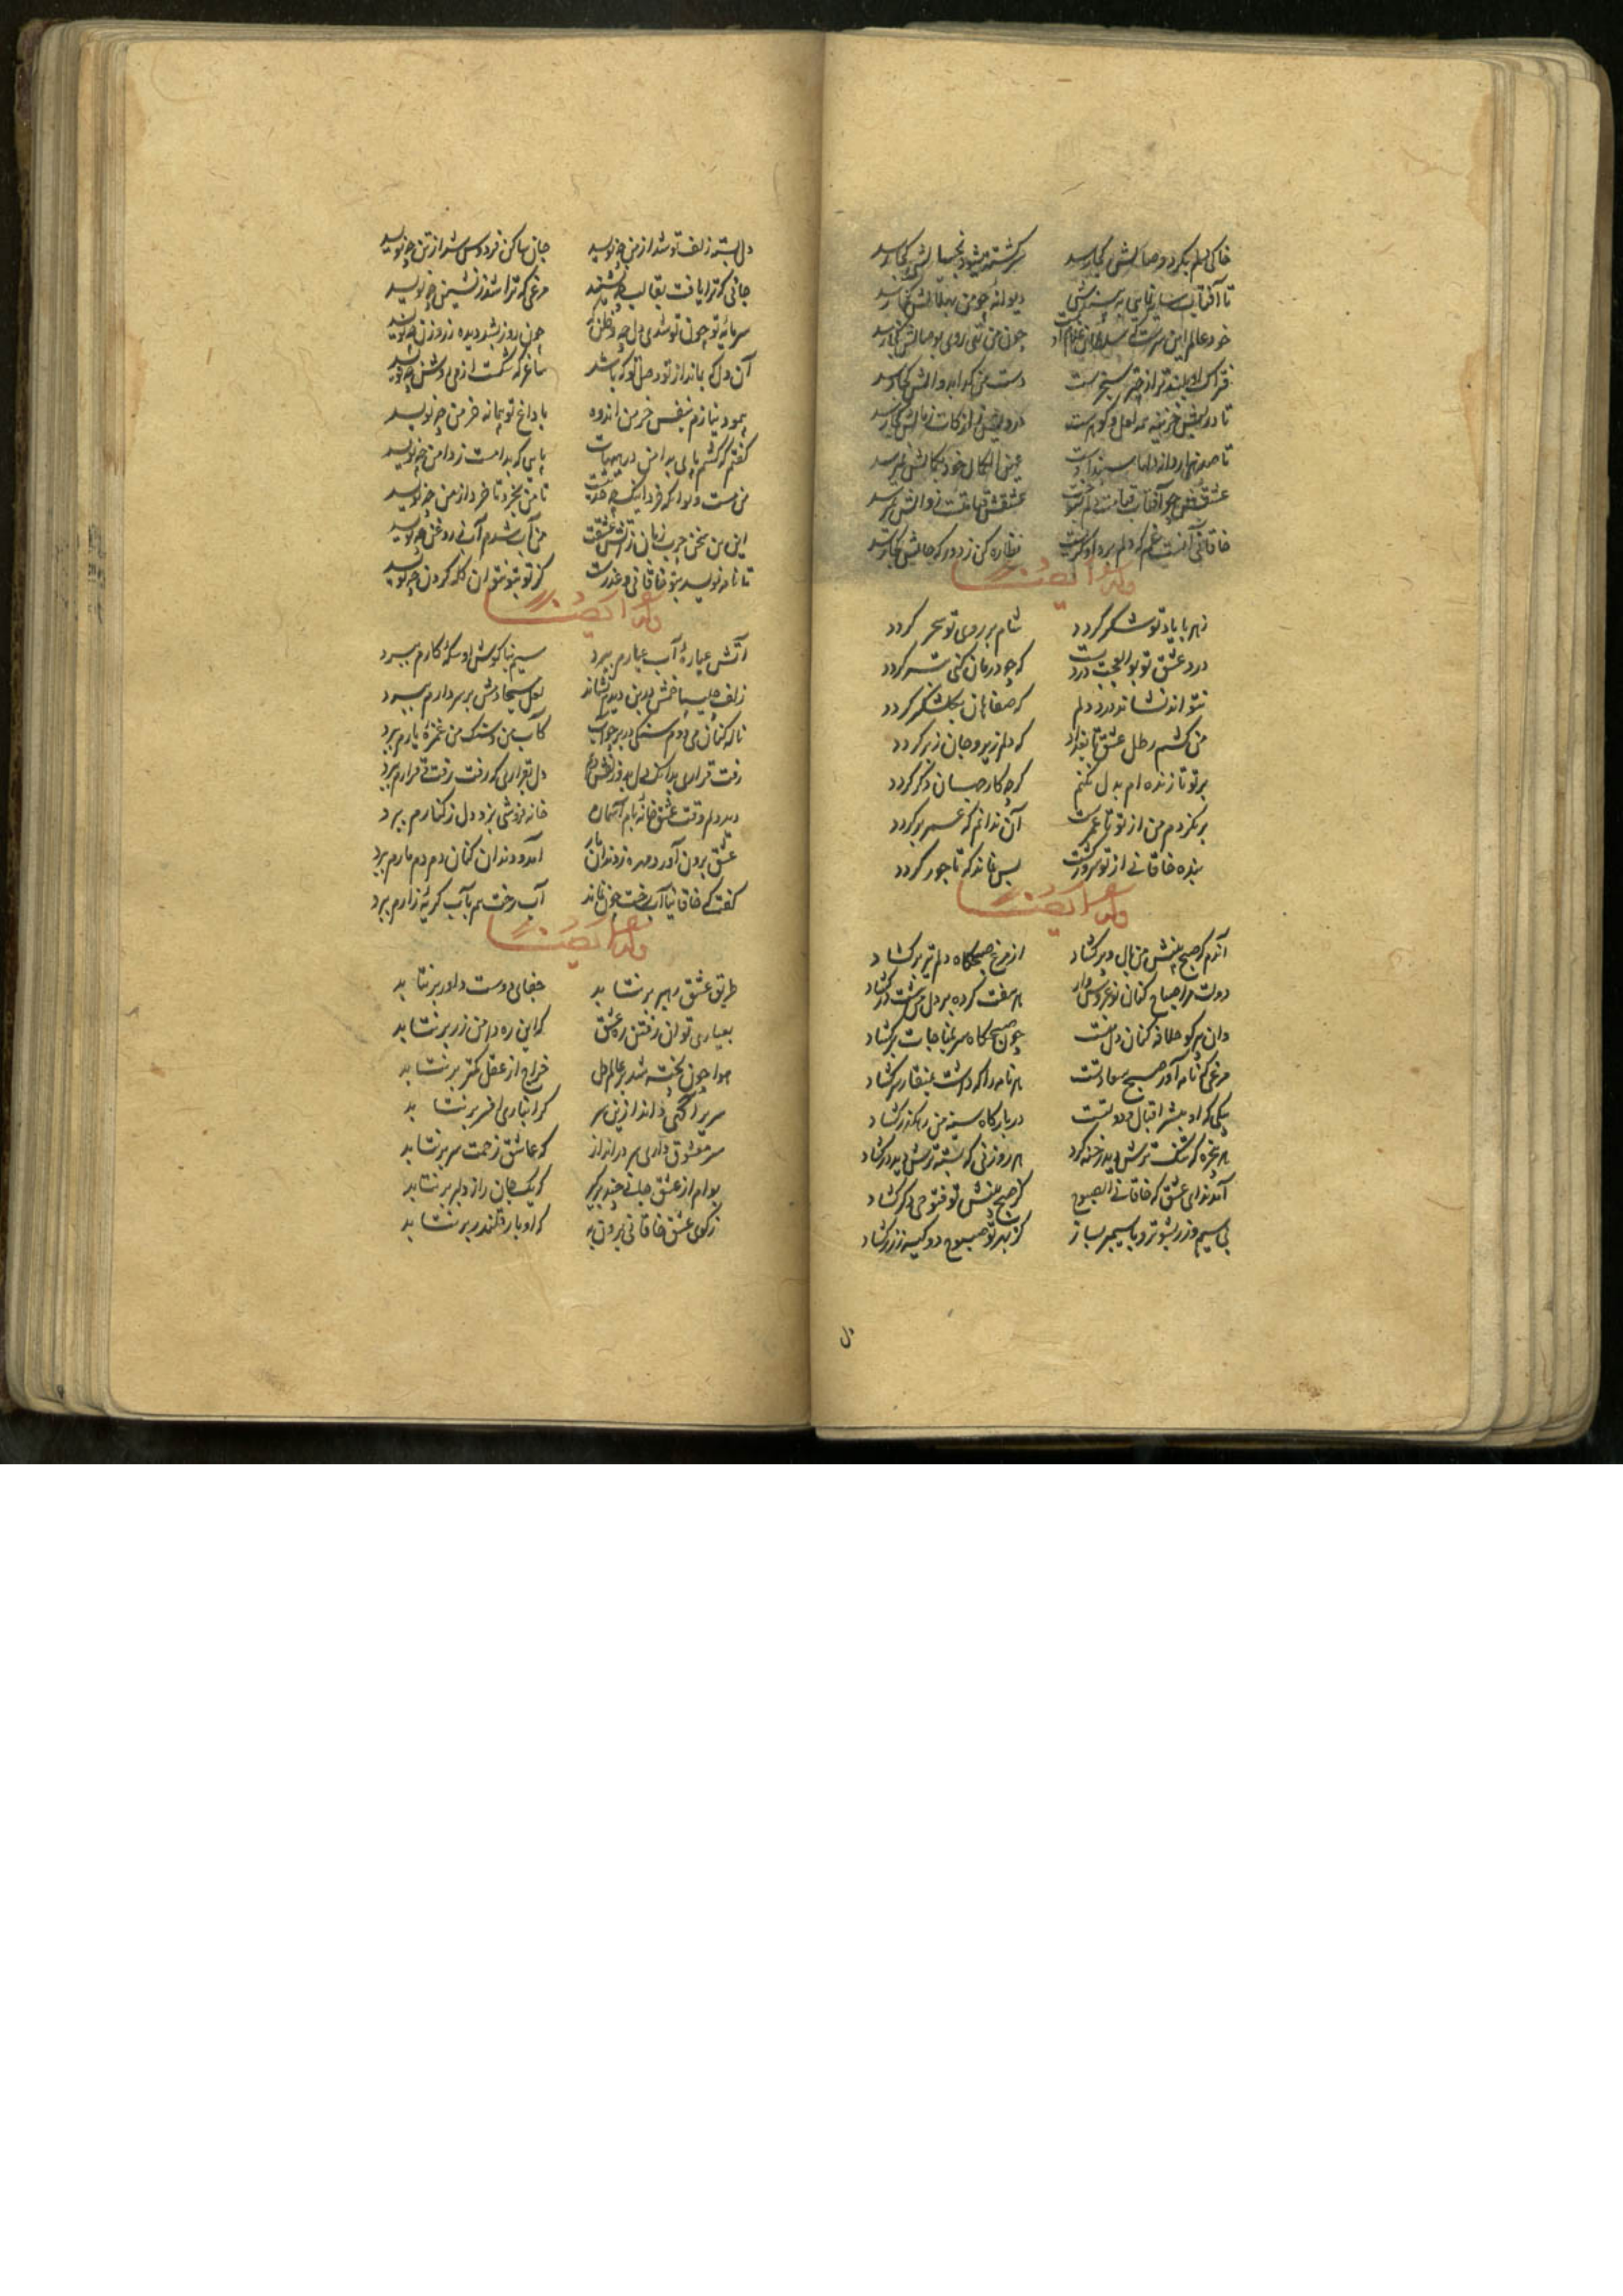 خاکی دلم بگرد وصالش کجا رسد سرگشته میشود بخیالش کجا رسد
تا آفتاب سایه نمایی به پیش دیوانه چو من بهلالش کجا رسد
خود عالم این سرست که سلطان غلام چون من تهی روی بوصالش کجا رسد
فتراک او بلندتر از چتر سنجرست دست من گدا بدوالش کجا رسد
تا درپیش خزینه همه لعل و گوهرست درویش را زکات ز مالش کجا رسد
تا صد هزار دانه دلها سپند اوست عین الکمال خود بکمالش کجا رسد
عشق چو آفتاب قیامت دلم بسوخت عشقش قیامتست زوالش کجا رسد
خاقانی آنست غم که دلم برد او گریخت نظاره کن ز دور که حالش کجا رسد
وله ایضا
زهر با یاد تو شکر گردد شام بر روی تو سحر گردد
درد عشق تو بوالعجب دردیست که چو درمان کنی بتر گردد
نتواند نشاند درد دلم گر صفاهان بگلشکر گردد
من کشم رطل عشق تا بغداد که دلم زیر و جان زبر گردد
بر تو تا زنده ام بدل نکنم گرچه کار جهان دگر گردد
برنگردم من از تو تا عمرست آن ندانم که عمر برگردد
بنده خاقانی از تو سرور گشت بس نماند که تاجور گردد
وله ایضا
آندم که صبح بینش من بال و پر گشاد از مرغ صبحگاه دلم تیزتر گشاد
دولت مرا صباح کنان نو عروس وار هر هفت کرده بر دل من هشت در گشاد
وان پیر کو خلافه کنان دل منست چون صبحگاه سر بمناجات برگشاد
مرغی که نامه آور صبح سعادتست هر نامه را که داشت بمنقار سر گشاد
پیکی که او مبشر اقبال و دولتست در بارگاه سینه من رهگذر گشاد
هر پنجره که تنگ ترش دید رخنه کرد هر روزنی که بسته ترش دید درگشاد
آمد ندای عشق که خاقانی الصبوح کز صبح بینش تو فتوحی دگر گشاد
بی سیم و زر بشو تو و با سیمبر بساز کز بهر تو صبوح دو کیسه ز زر گشاد
دل
دل بسته زلف تو شد از من چه نویسد جان ساکن فردوس شد از تن چه نویسد
جانی که ترا یافت بقالب چه نشیند مرغی که ترا شد ز نشیمن چه نویسد
سرمایه تو چون تو شدی دل چه وطن چون روز بشد دیده ز روزن چه نویسد
آن دل که بماند از تو وصل تو که باشد ساغر که شکست از می روشن چه نویسد
پیمود نیازم بنفس خرمن اندوه با داغ تو پیمانه خرمن چه نویسد
گفتم که کشم پای بدامن در هیهات پایی که بدامست ز دامن چه نویسد
من مست و تو ا که فردا چه حدیث تا من بخرد تا خرد از من چه نویسد
این من سخن چرب زبان ز آتش عشقت من آب شدم آب ز روغن چه نویسد
تا نامه نویسد بتو خاقانی و عذرست کز تو بتو نتوان گله کردن چه نویسد
وله ایضا
آتش عیاره آب عیارم ببرد سیم بناگوش او سکه کارم ببرد
زلف چلیپا خمش در بن دیرم نشاند لعل مسیحا دمش بر سر دارم ببرد
ناله کنان می دوم سنگی در بر چو آب کآب من و سنگ من غمزه یارم ببرد
رفت قراری بدانک دل بدو زلفش دهم دل بقراری که رفت رفت قرارم ببرد
دید دلم وقف عشق خانه بام آسمان خانه فروشی بزد دل ز کنارم ببرد
عشق برون آورد مهره ز دندان مار آمد و دندان کنان دم دم مارم ببرد
گفت که خاقانیا آب رخت چون نماند آب رخم هم بآب گریه زارم ببرد
وله ایضا
طریق عشق رهبر برنتابد جفای دوست داور برنتابد
بعیاری توان رفتن ره عشق که این ره دامن تر برنتابد
هوا چون شحنه شد بر عالم دل خراج از عقل کمتر برنتابد
سریرا کنی داند ازین سر گرانباری افسر برنتابد
سر معشوق داری سر درانداز که عاشق زحمت سر برنتابد
بوام از عشق جانی چند برگیر که یک جان راز دلبر برنتابد
ز کوی عشق خاقانی برون به که او یار قلندر برنتابد